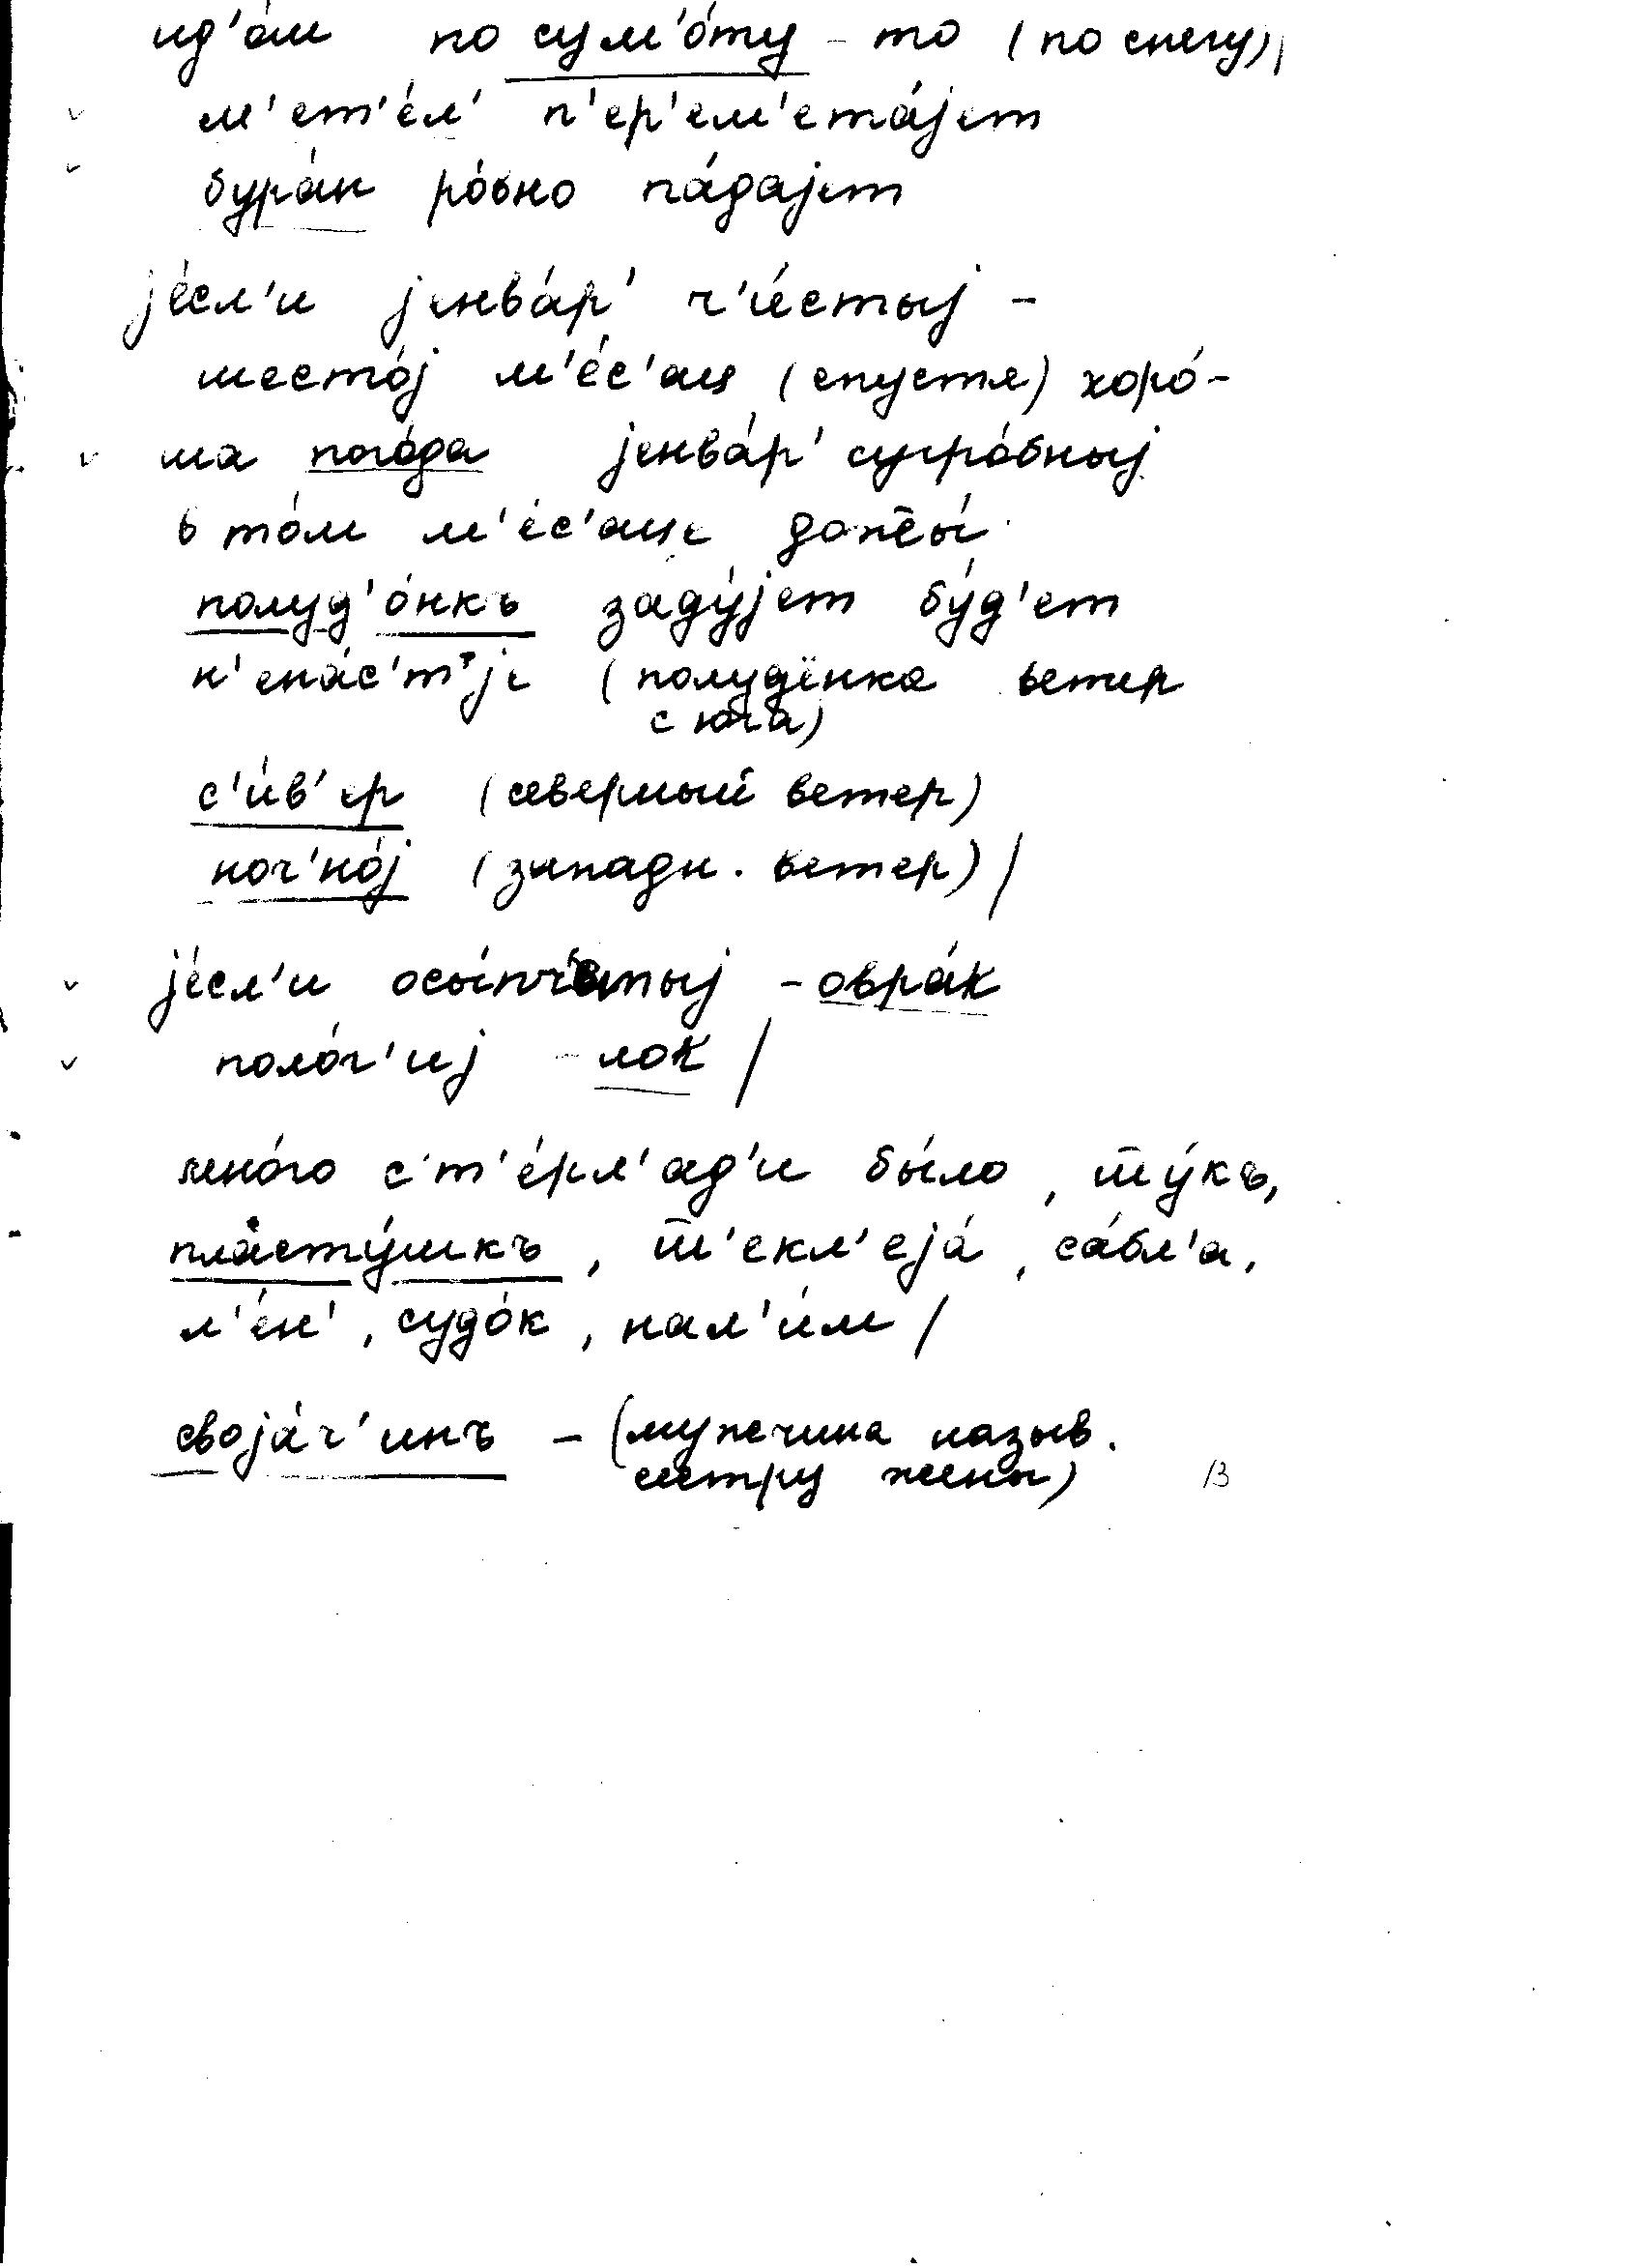 ид'о́м по сум'о́ту - то (по снегу)|
м'ет'е́л' п'ер'ем'ета́jет
бура́н ро́вно па́даjет
jе́сл'и jенва́р' ч'и́стыj -
шесто́j м'е́с'ац (спустя) хоро́-
ша пого́да jенва́р' сугро́бныj
в то́м м'е́с'аце дожжы́
полуд'о́нкъ заду́jет бу́д'ет
н'ена́с'т'jе (полудёнка ветер
с юга)
с'и́в'ер (северный ветер)
ноч'но́j (западн. ветер) /
jе́сл'и осы́пч'атыj - овра́к
поло́г'иj - лок /
мно́го с'т'е́рл'ад'и бы́ло, шшу́къ,
пласту́шкъ, ч'екл'еjа́, са́бл'а,
л'е́н', судо́к, нал'и́м /
своjа́ч'инъ - (мужчина назыв.
сестру жены)
13